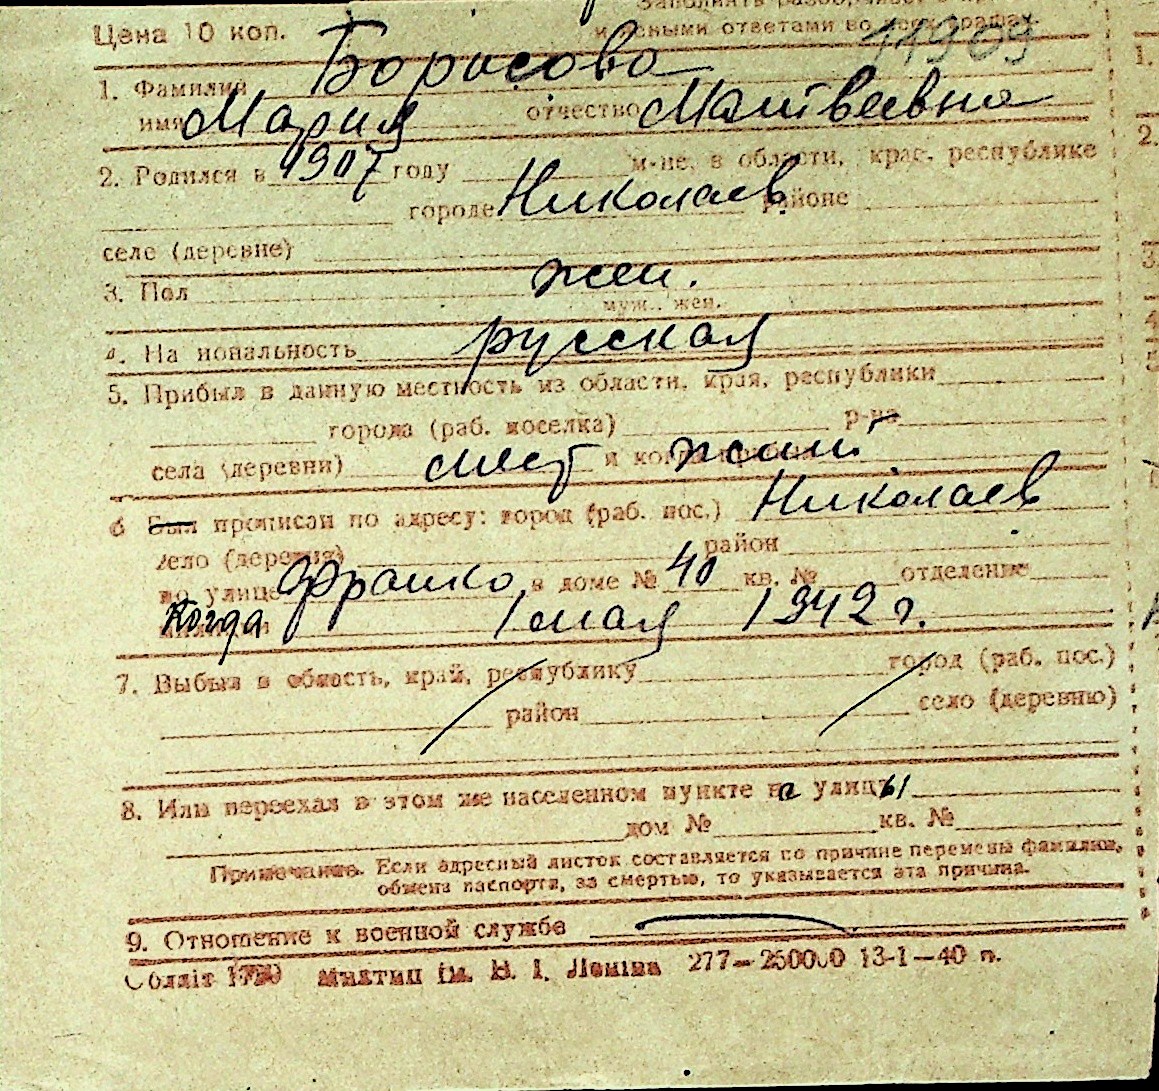 Заполнять разборчиво
Цена 10 коп. и ясными ответами во всех графах. 11909
1. Фамилия Борисова
имя Мария отчество Матвеевна
2. Родился в 1907 году м-це, в области, крае, республике
городе Николаев районе
селе (деревне)
3. Пол жен.
муж., жен.
4. Национальность русская
5. Прибыл в данную местность из области, края, республики
города (раб. поселка) р-на
села (деревни) мест и когда жит.
6 Был прописан по адресу: город (раб. пос.) Николаев
село (деревня) район
по улице Франко в доме № 40 кв. № отделение
Когда 1 мая 1942 г.
7. Выбыл в область, край, республику город (раб. пос.)
район село (деревню)
8. Или переехал в этом же населенном пункте на улицы
дом № кв. №
Примечание. Если адресный листок составляется по причине перемены фамилии,
обмена паспорта, за смертью, то указывается эта причина.
9. Отношение к военной службе
Облліт Миктип ім. В. І. Леніна 277—250000 13-1—40 п.
1.
2.
3.
4
5